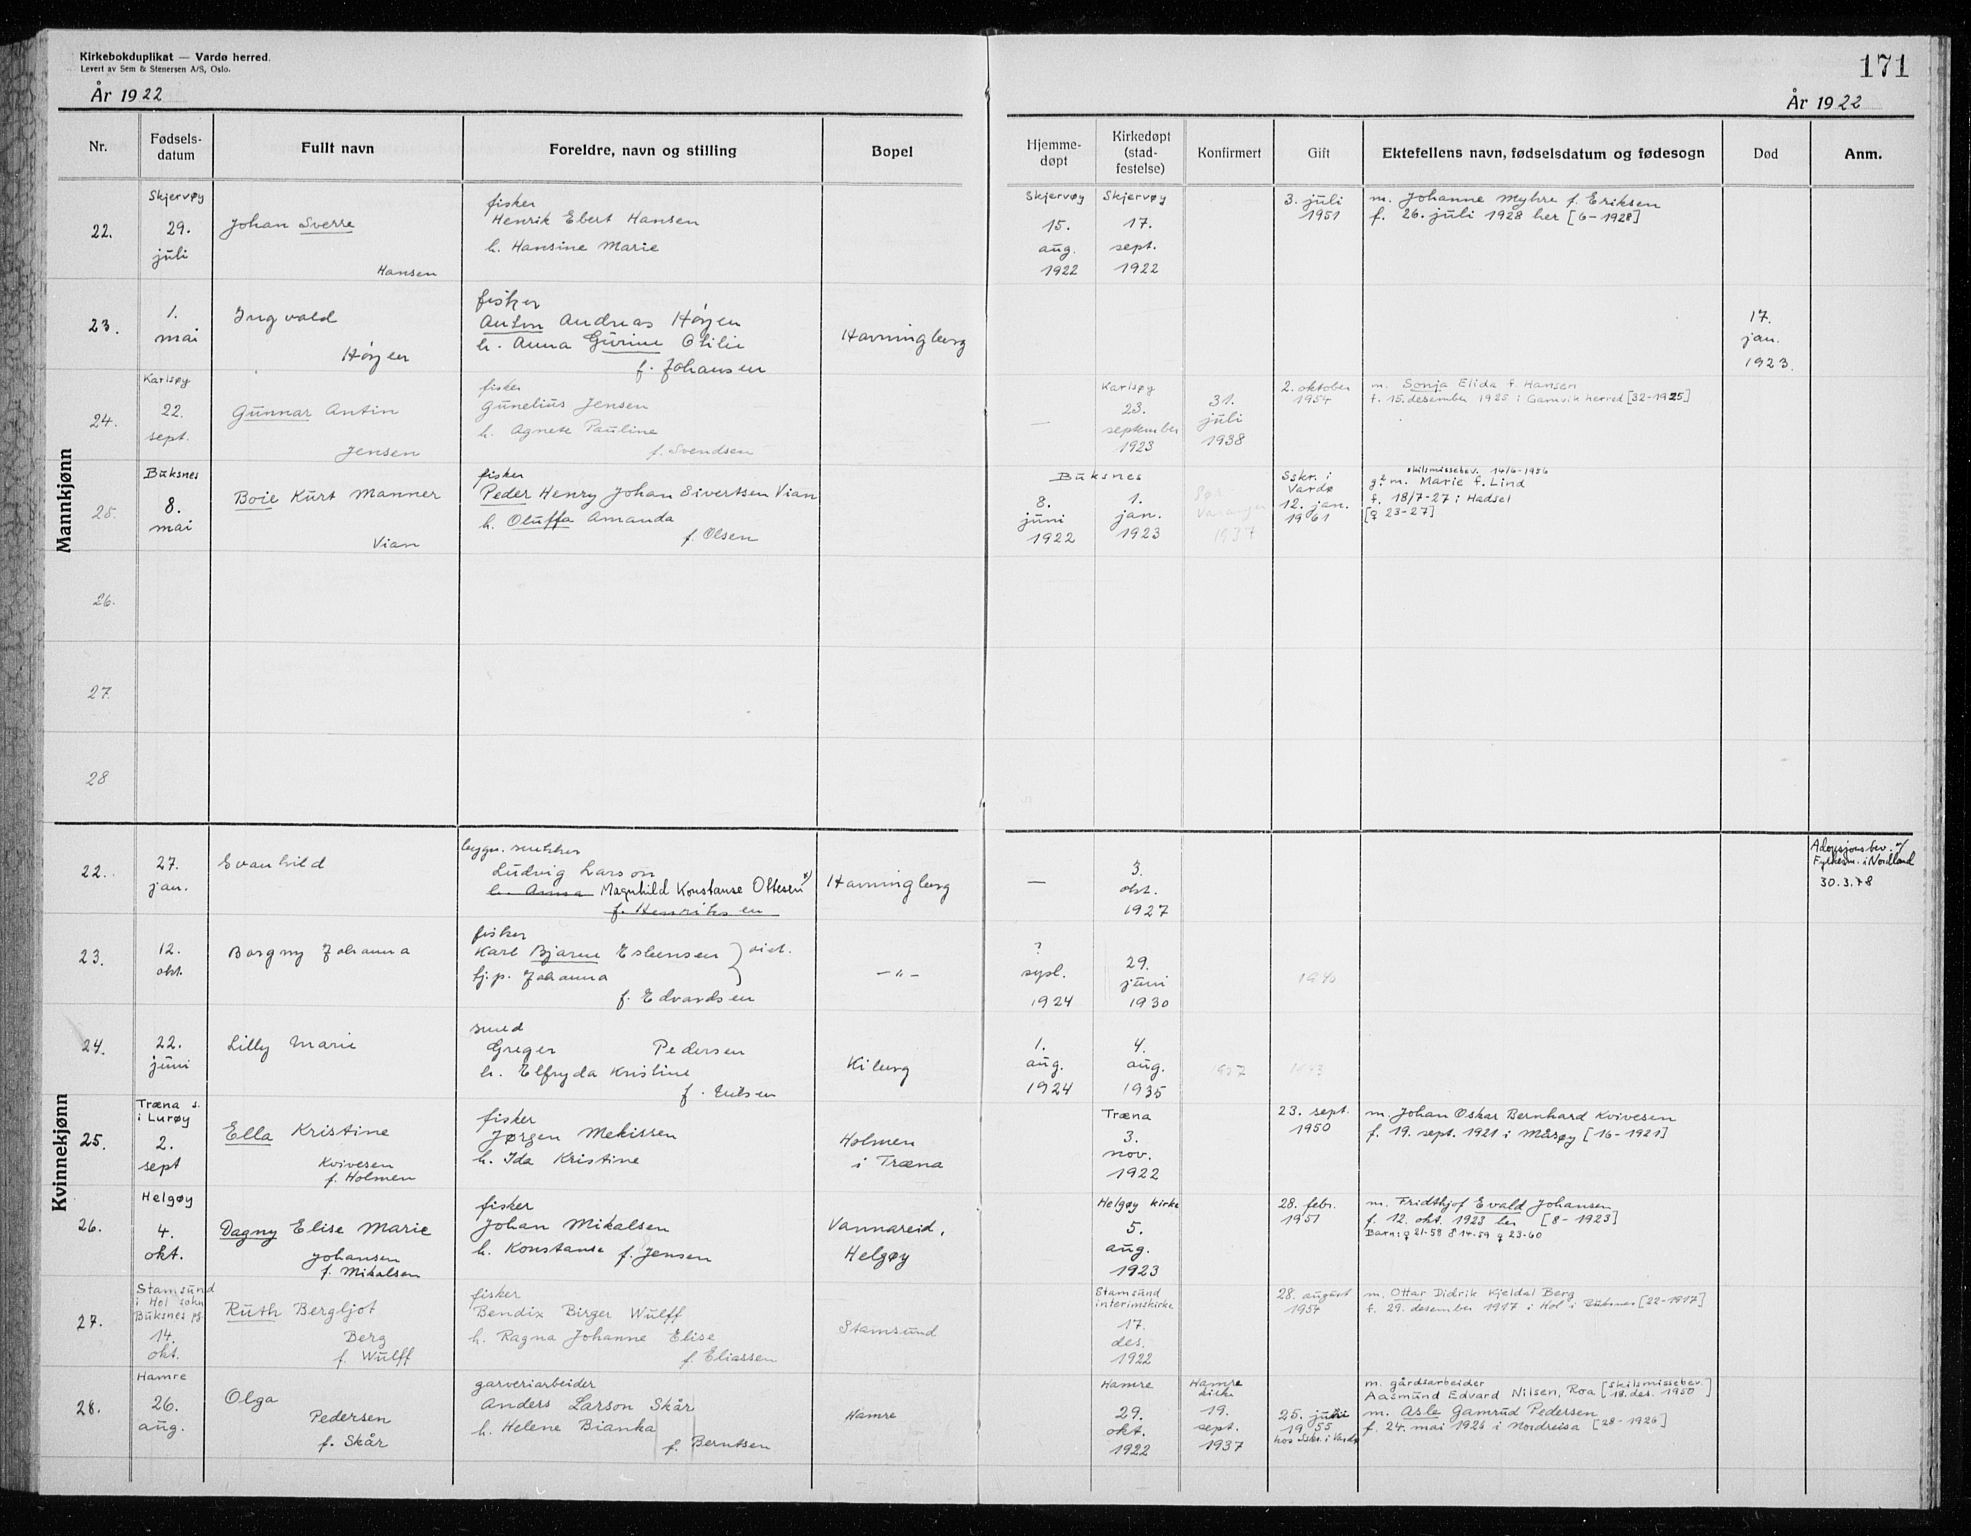 Kirkebokduplikat — Vardø herred.
Levert av Sem & Stenersen A/S, Oslo.
171
År 1922
År 1922
Nr.
Fødsels-
datum
Fullt navn
Foreldre, navn og stilling
Bopel
Hjemme-
døpt
Kirkedøpt
(stad-
festelse)
Konfirmert
Gift
Ektefellens navn, fødselsdatum og fødesogn
Død
Anm.
Mannkjønn
22.
Skjervøy
29.
juli
Johan Sverre
Hansen
fisker
Henrik Ebert Hansen
h. Hansine Marie
Skjervøy
15.
aug.
1922
Skjervøy
17.
sept.
1922
3. juli
1951
m. Johanne Myhre f. Eriksen
f. 26. juli 1928 her [6-1928]
23.
1.
mai
Ingvald
Højen
fisker
Anton Andreas Højen
h. Anna Gurine Otilie
f. Johansen
Havningberg
17.
jan.
1923.
24.
Karlsøy
22.
sept.
Gunnar Antin
Jensen
fisker
Gunelius Jensen
h. Agnete Pauline
f. Svendsen
—
Karlsøy
23.
september
1923
31.
juli
1938
2. oktober
1954
m. Sonja Elida f. Hansen
f. 15. desember 1925 i Gamvik herred [32-1925]
25.
Buksnes
8.
mai
Boie Kurt Manner
Vian
fisker
Peder Henry Johan Sivertsen Vian
h. Oluffa Amanda
f. Olsen
Buksnes
8.
juni
1922
1.
jan.
1923
Sør-
Varanger
1937
Sskr. i
Vardø
12. jan.
1961
skilsmissebev. 14/6-1956
g² m. Marie f. Lind
f. 18/7-27 i Hadsel
[♀ 23-27]
26.
27.
28
Kvinnekjønn
22.
27.
jan.
Svanhild
bygn. snekker
Ludvig Larson
h. Anna Magnhild Konstanse Oltesen x)
f. Henriksen
Havningberg
—
3.
okt.
1927
Adopsjonsbev. x/
Fylkesm. i Nordland
30.3.78
23.
12.
okt.
Borgny Johanna
fisker
Karl Bjarne Esbensen
hj.p. Johanna
f. Edvardsen
—"—
?
sept.
1924
29.
juni
1930
24.
22.
juni
Lilly Marie
smed
Greger Pedersen
h. Elfryda Kristine
Kiberg
1.
aug.
1924
4.
aug.
1935
25.
Træna s.
i Lurøy
2.
sept
Ella Kristine
Kvivesen
f. Holmen
fisker
Jørgen Mekissen
h. Ida Kristine
Holmen
i Træna
Træna
3.
nov.
1922
23. sept.
1950
m. Johan Oskar Bernhard Kvivesen
f. 19. sept. 1921 i Måsøy [16-1921]
26.
Helgøy
4.
okt.
Dagny Elise Marie
Johansen
f. Mikalsen
fisker
Johan Mikalsen
h. Konstanse f. Jensen
Vannareid,
Helgøy
Helgøy kirke
5.
aug.
1923
28. febr.
1951
m. Fridthjof Evald Johansen
f. 12. okt. 1923 her [8-1923]
Barn: ♀ 21-58 ♂ 14-59 ♀ 23-60
27.
Stamsund
i Hol sokn
Buksnes pg.
14.
okt.
Ruth Bergljot
Berg
f. Wulff
fisker
Bendix Birger Wulff
h. Ragna Johanne Elise
f. Eliassen
Stamsund
Stamsund
interimskirke
17.
des.
1922
28. august
1954
m. Ottar Didrik Kjeldal Berg
f. 29. desember 1917 i Hol i Buksnes [22-1917]
28.
Hamre
26.
aug.
Olga
Pedersen
f. Skår
garveriarbeider
Anders Larson Skår
h. Helene Bianka
f. Berntsen
Hamre
Hamre
29.
okt.
1922
Hamre
kirke
19.
sept.
1937
25. juni
1955
hos Sskr. i Vardø
m. gårdsarbeider
Aasmund Edvard Nilsen, Roa [skilsmissebev. 18. des. 1950]
m. Asle Gamrud Pedersen
f. 24. mai 1926 i Nordreisa [28-1926]